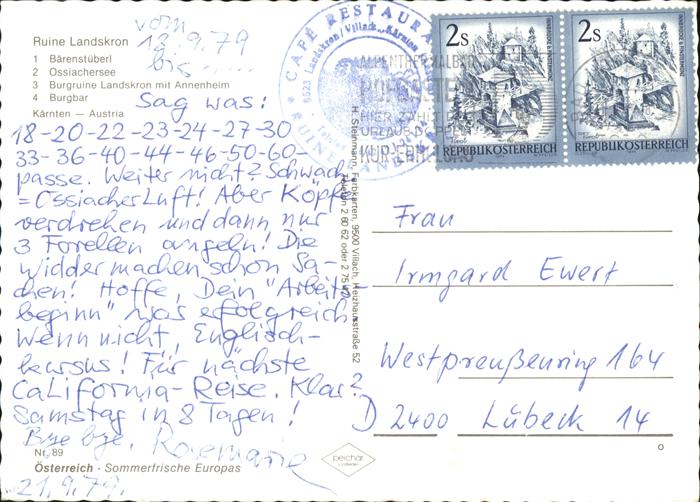 Ruine Landskron
1 Bärenstüberl
2 Ossiachersee
3 Burgruine Landskron mit Annenheim
4 Burgbar
Kärnten – Austria
vom
18.9.79
bis......
Sag was:
18-20-22-23-24-27-30
33-36-40-44-46-50-60-
passe. Weiter nicht? Schwach
= Ossiacher Luft! Aber Köpfe
verdrehen und dann nur
3 Forellen angeln! Die
Widder machen schon Sa-
chen! Hoffe, Dein "Arbeits-
beginn" was erfolgreich.
Wenn nicht, Englisch-
kursus! Für nächste
California-Reise. Klar?
Samstag in 8 Tagen!
Bye bye, Rosemarie
Nr. 89
Österreich - Sommerfrische Europas
21.9.79.
H. Steinmann, Farbkarten, 9500 Villach, Heizhausstraße 52
Telefon 2 60 62 oder 2 75
CAFÉ RESTAURA
9523 Landskron/Villach, Kärnten
RUINE LAN
ALPENTHERMALBAD
HIER ZÄHLT
URLAUB DOPPELT
KUR-ERHOLUNG
2s
REPUBLIK ÖSTERREICH
2s
REPUBLIK ÖSTERREICH
Frau
Irmgard Ewert
Westpreußenring 164
D 2400 Lübeck 14
peichar